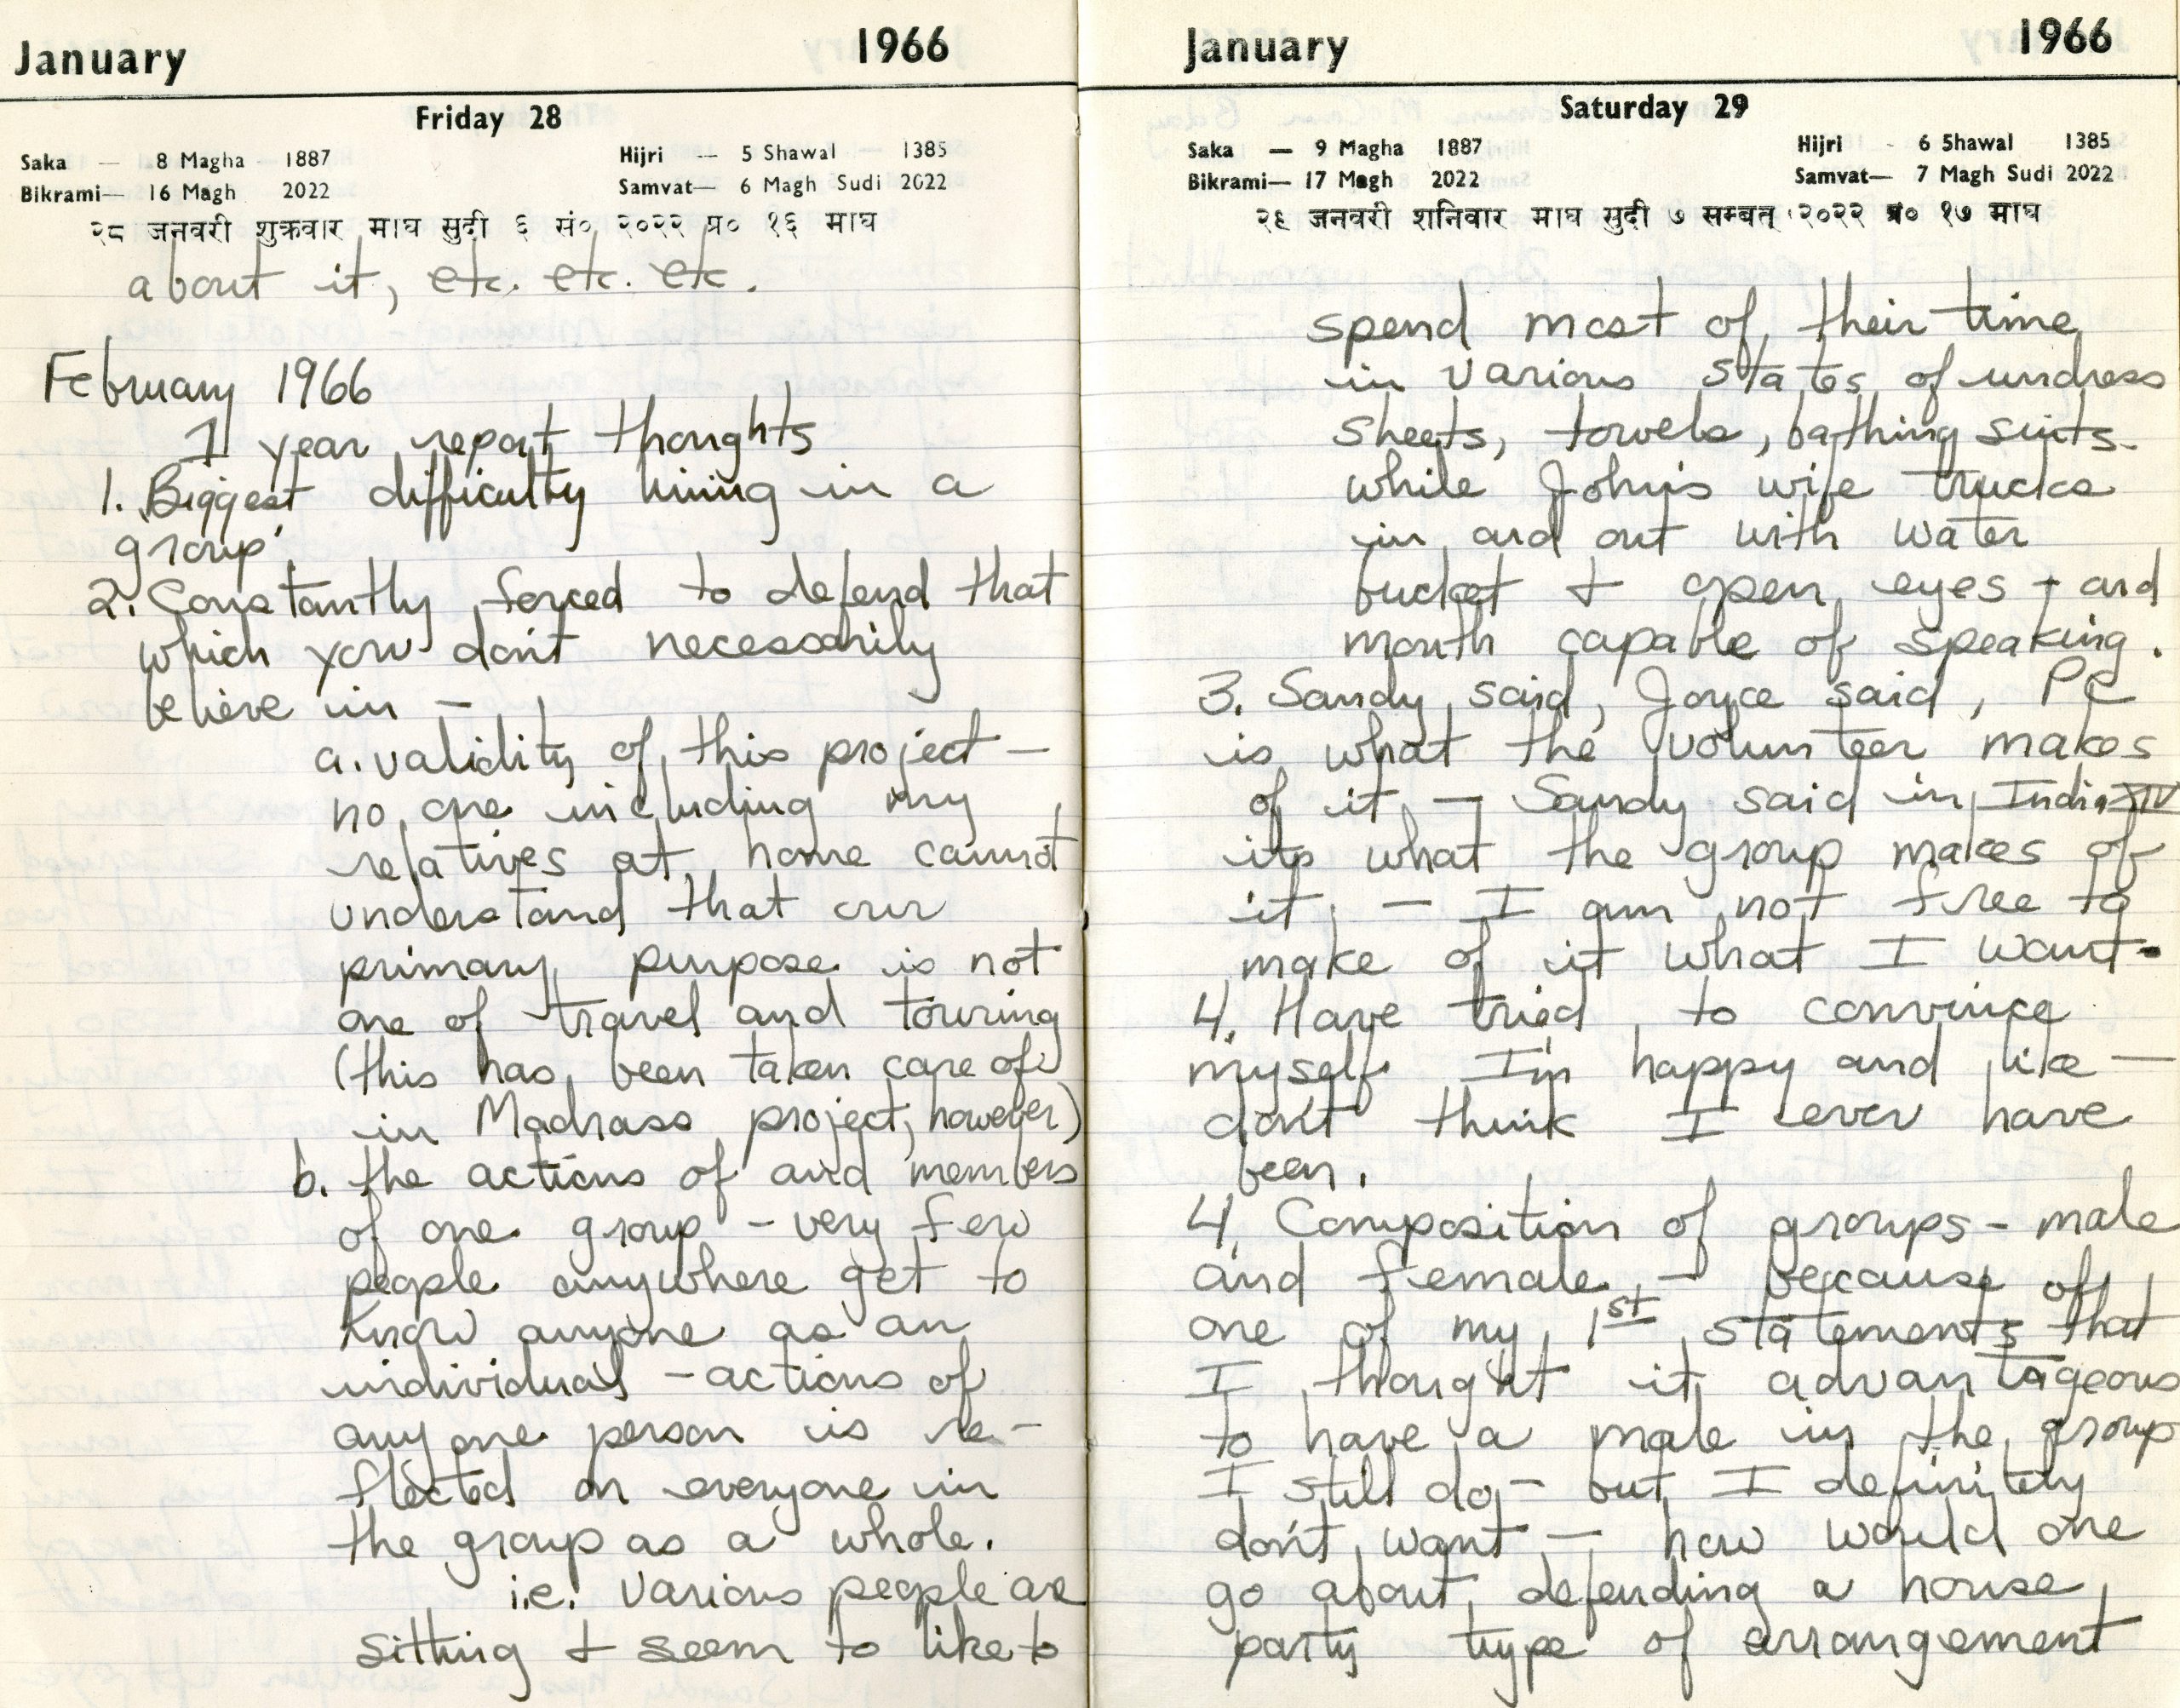 January 1966
Friday 28
Saka — 8 Magha — 1887 Hijri — 5 Shawal 1385
Bikrami— 16 Magh 2022 Samvat— 6 Magh Sudi 2022
२८ जनवरी शुक्रवार माघ सुदी ६ सं० २०२२ प्र० १६ माघ
about it, etc. etc. etc.
February 1966
1 year report thoughts
1. Biggest difficulty living in a
group.
2. Constantly forced to defend that
which you don't necessarily
believe in —
a. validity of this project —
no one including my
relatives at home cannot
understand that our
primary purpose is not
one of travel and touring
(this has been taken care of
in Madrass project, however)
b. the actions of and members
of one group - very few
people anywhere get to
know anyone as an
individual - actions of
any one person is re-
flected on everyone in
the group as a whole.
i.e. various people are
sitting + seem to like to
January 1966
Saturday 29
Saka — 9 Magha 1887 Hijri - 6 Shawal 1385
Bikrami— 17 Magh 2022 Samvat— 7 Magh Sudi 2022
२९ जनवरी शनिवार माघ सुदी ७ सम्बत् २०२२ प्र० १७ माघ
spend most of their time
in various states of undress
sheets, towels, bathing suits -
while John's wife trucks
in and out with water
bucket + open eyes - and
mouth capable of speaking.
3. Sandy said, Joyce said, PC
is what the volunteer makes
of it — Sandy said in India XIV
its what the group makes of
it. — I am not free to
make of it what I want.
4. Have tried to convince
myself I'm happy and like —
don't think I ever have
been.
4. Composition of groups - male
and female - because of
one of my 1st statements that
I thought it advantageous
to have a male in the group
I still do - but I definitely
don't want — how would one
go about defending a house
party type of arrangement